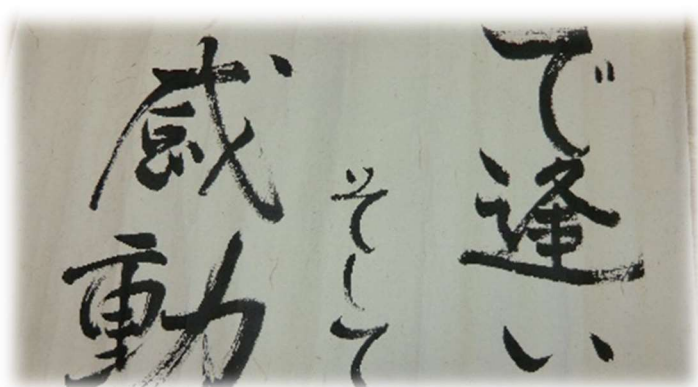 で逢い
そして
感動